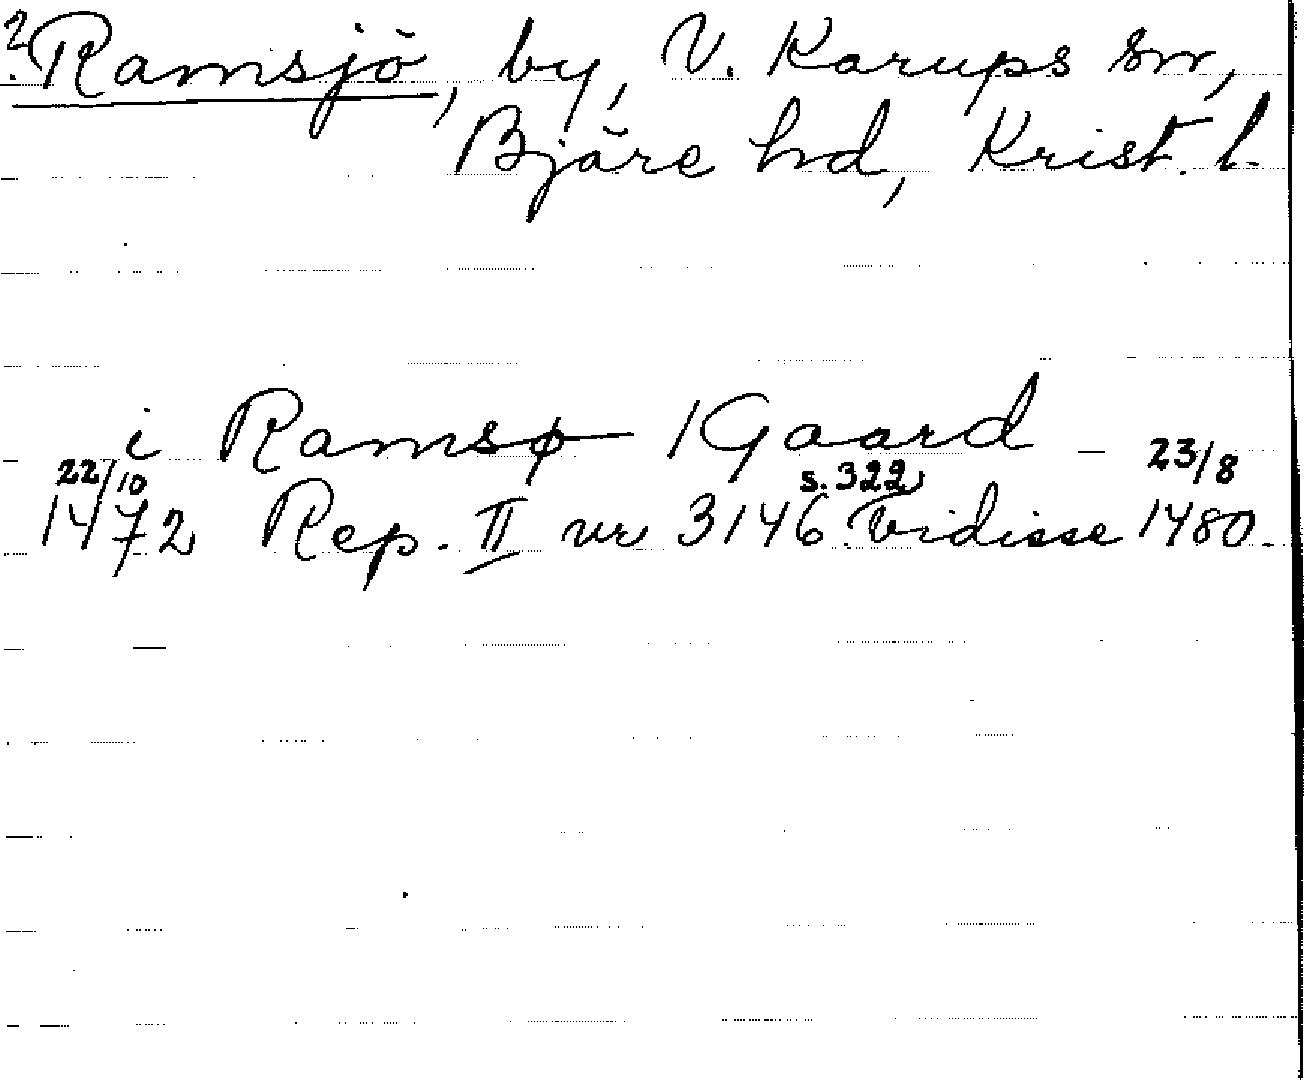 ? Ramsjö, by, V. Karups sn,
Bjäre hd, Krist. l.
i Ramsø 1 Gaard — 23/8
22/10 s. 322
1472 Rep. II nr 3146. Vidisse 1480.